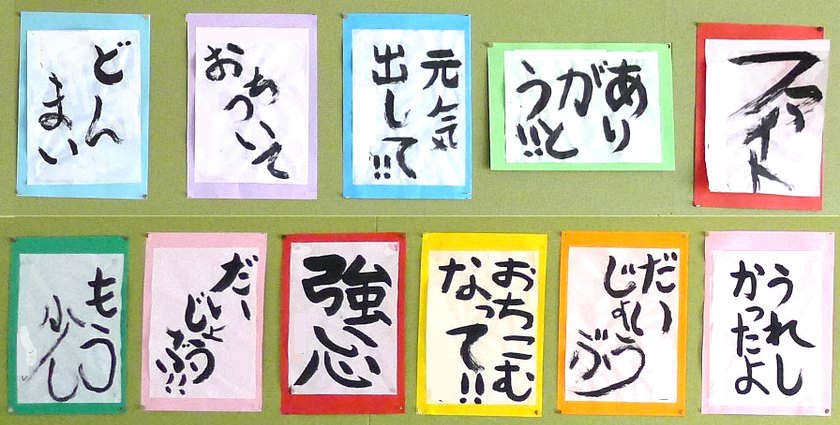 どん
まい
おちついて
元気
出して!!
あり
がと
う!!
ファイト
もう
少し
だい
じょう
ぶ!!
強い心
おちこむ
なって!!
だい
じょう
ぶ
うれし
かったよ